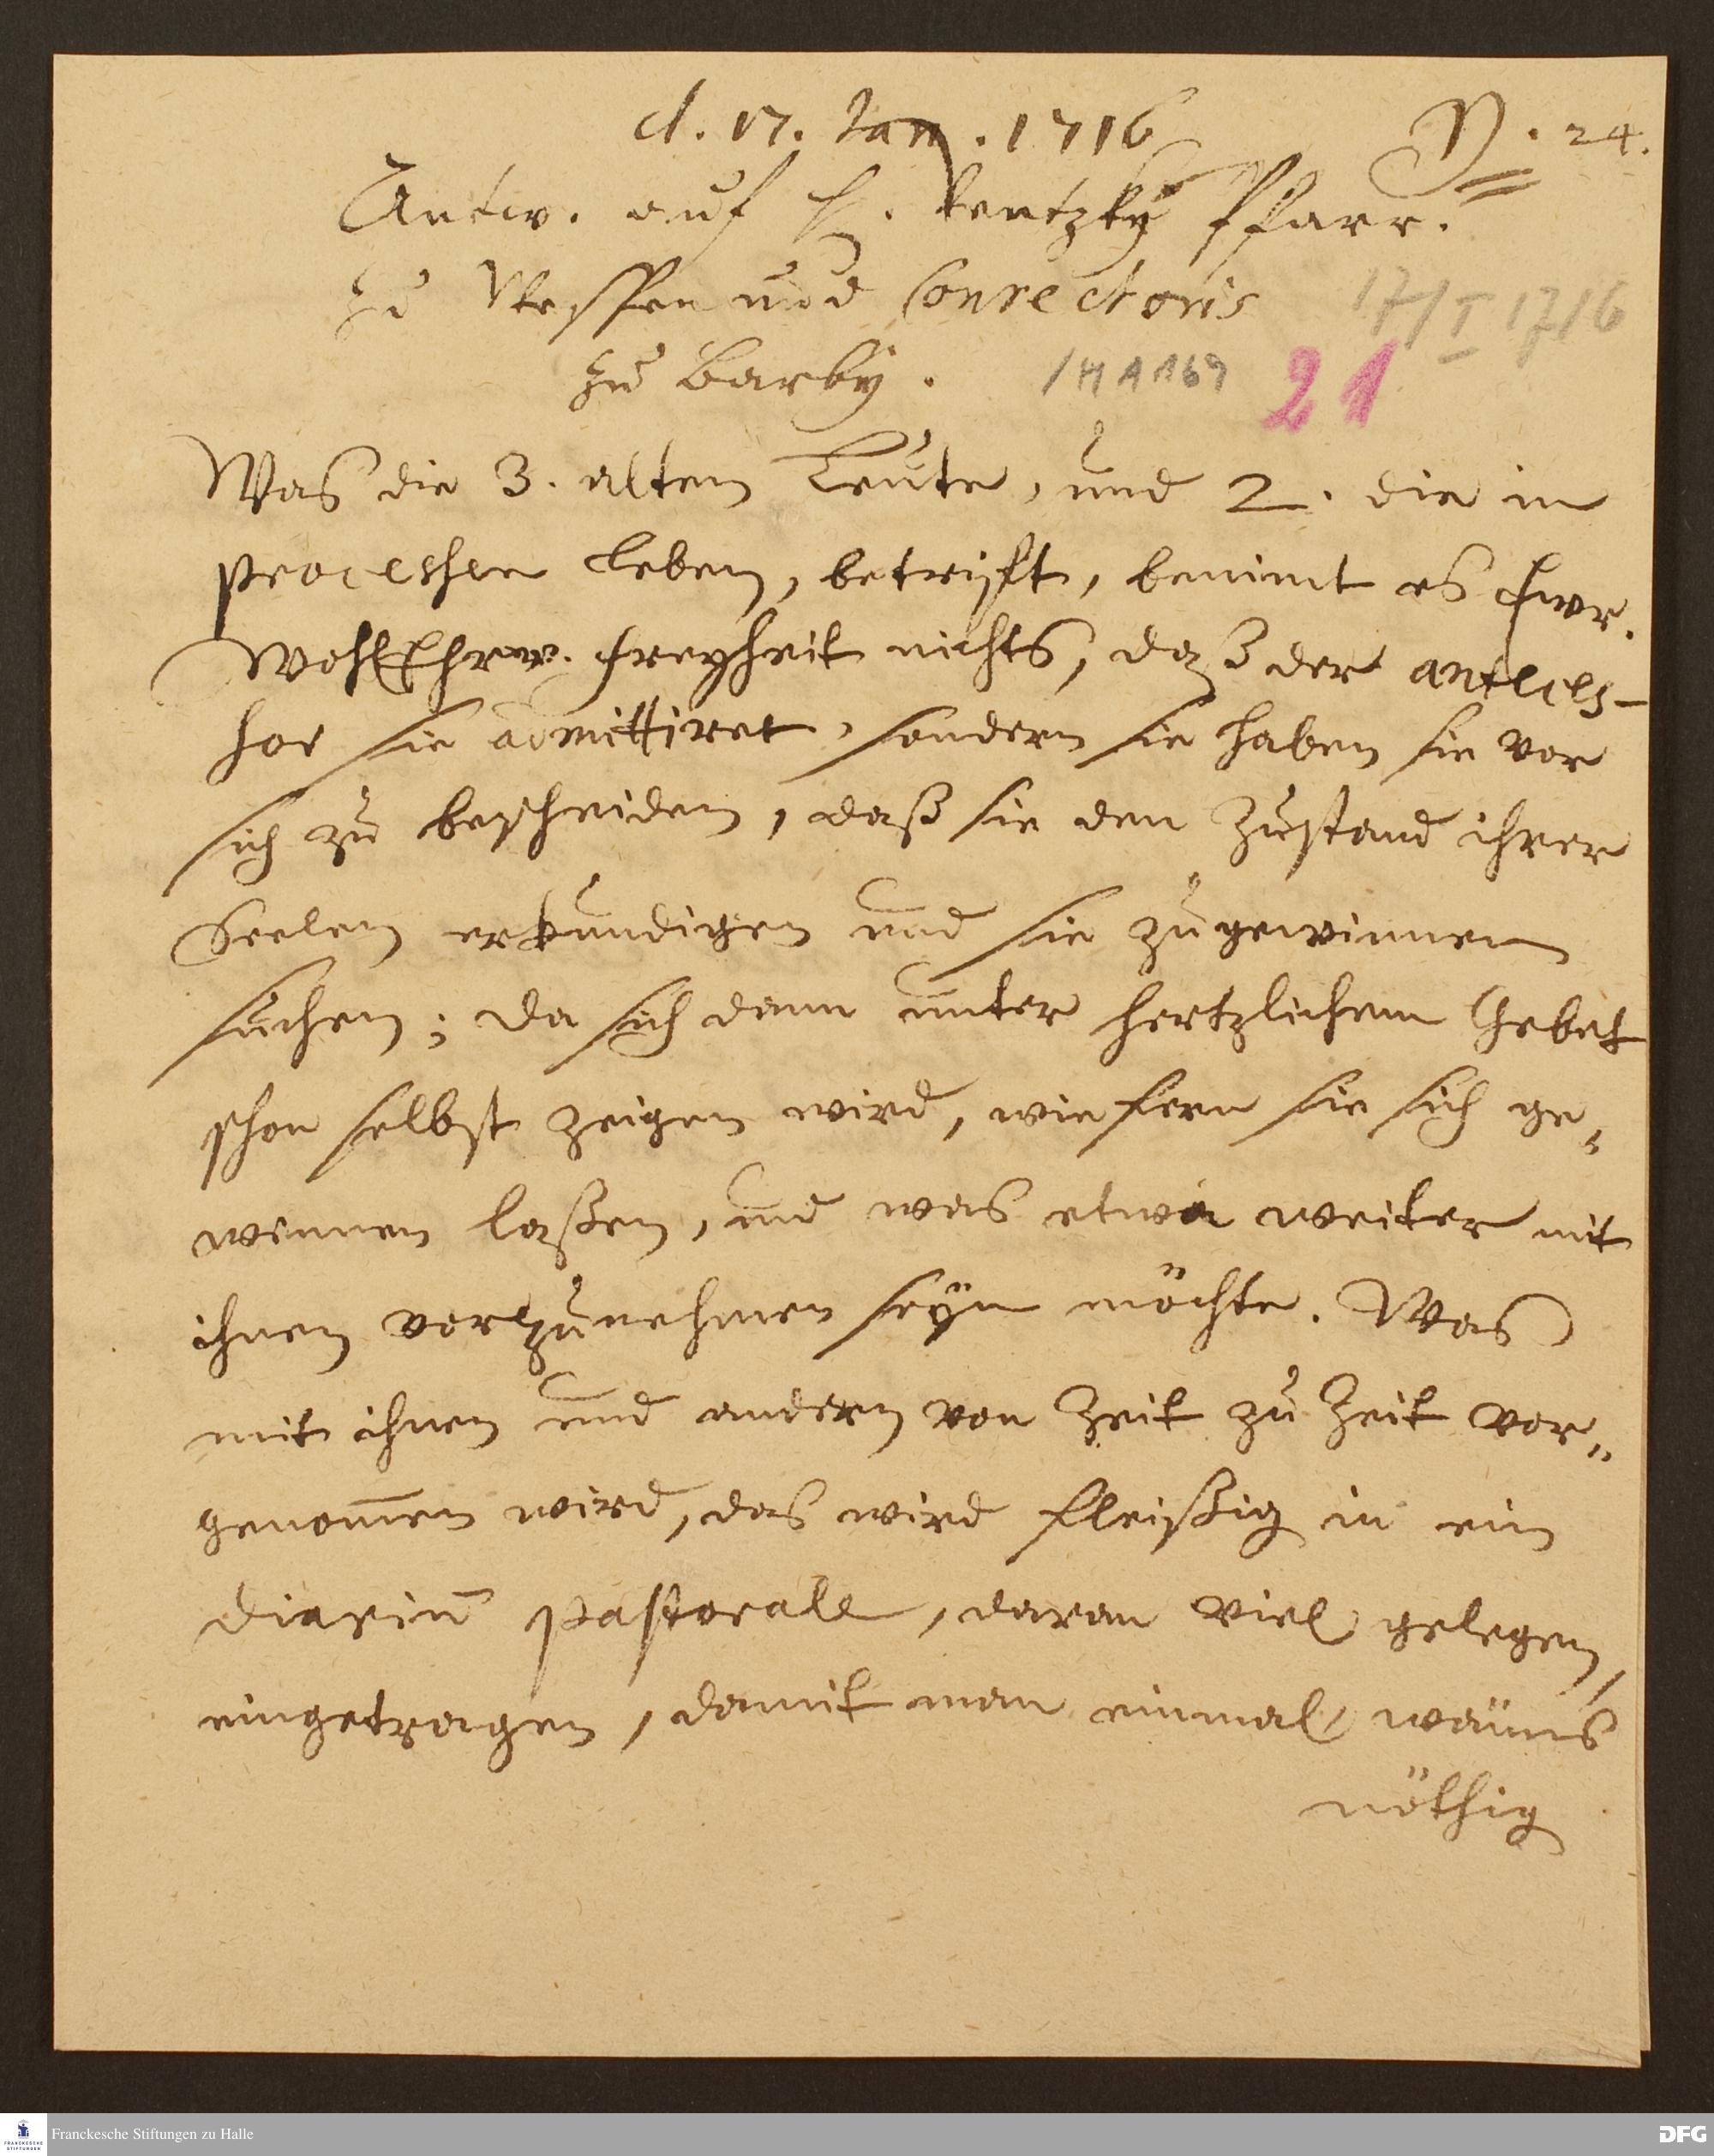 d. 17. Jan. 1716
N. 24.
Antw. auf H. Lentzky Pfarr.
zu und Conrectoris
17/I 1716
zu Barby.
/H A 169
21
Was die 3. alten Leute, und 2. die in
processen leben, betrifft, benimt es Ewr.
WohlEhrw. freyheit nichts, daß der anteces-
sor sie admittiret, sondern sie haben sie vor
sich zu bescheiden, daß sie den Zustand ihrer
Seelen erkundigen und sie zugewinnen
suchen; da sich dann unter hertzlichem Gebet
schon selbst zeigen wird, wiefern sie sich ge„
winnen laßen, und was etwa weiter mit
ihnen vorzunehmen seyn möchte. Was
mit ihnen und andern von Zeit zu Zeit vor„
genom̄en wird, das wird fleißig in ein
Diariū pastorale, daran viel gelegen,
eingetragen, damit man einmal, wañs
nöthig
Franckesche Stiftungen zu Halle
DFG
FRANCKESCHE
STIFTUNGEN